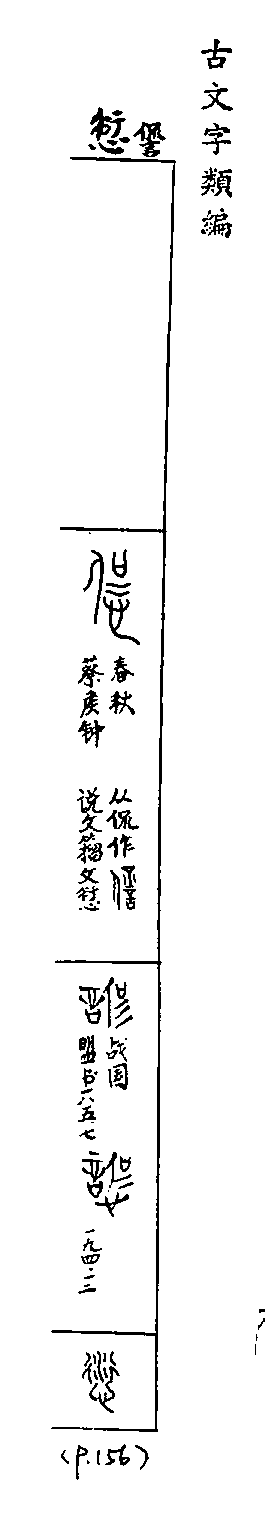 古文字類編
愆 𠍴
春秋
蔡侯钟
从侃作
说文籀文愆
战国
盟书一八五·七
一九四·一二
(P.156)